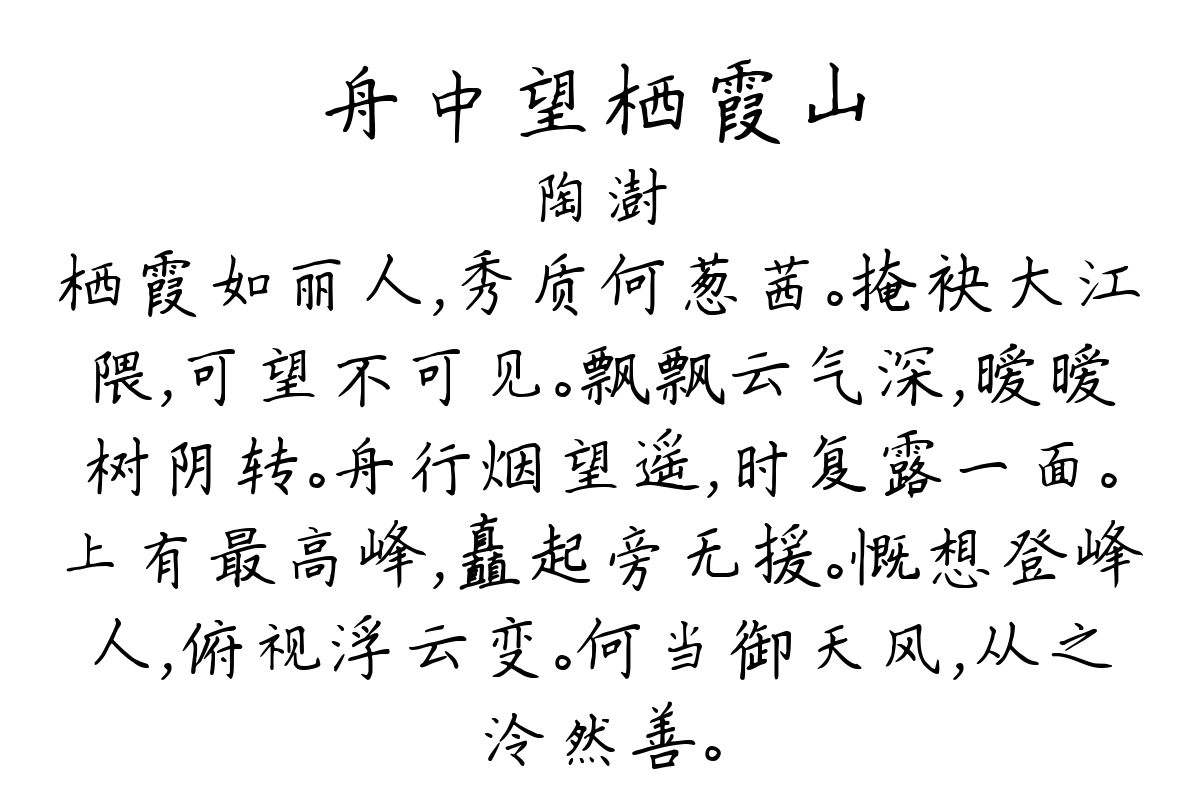 舟中望栖霞山
陶澍
栖霞如丽人,秀质何葱茜。掩袂大江
隈,可望不可见。飘飘云气深,暧暧
树阴转。舟行烟望遥,时复露一面。
上有最高峰,矗起旁无援。慨想登峰
人,俯视浮云变。何当御天风,从之
泠然善。